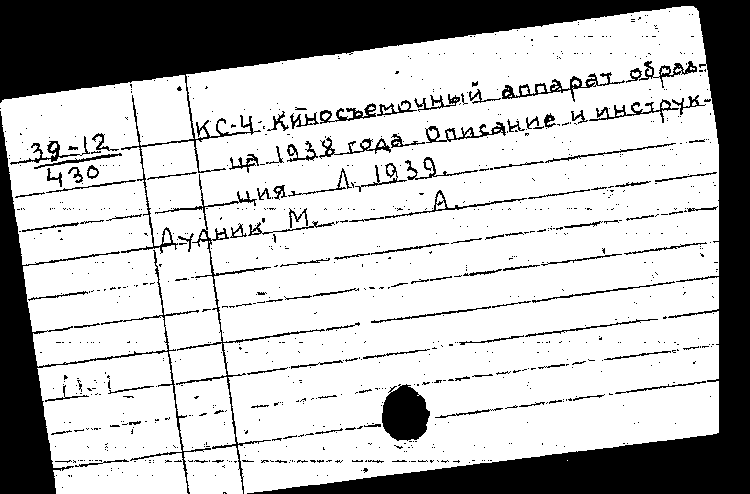 39-12
430
КС-4. Киносъемочный аппарат образ-
ца 1938 года. Описание и инструк-
ция. Л., 1939.
Дудник, М. А.